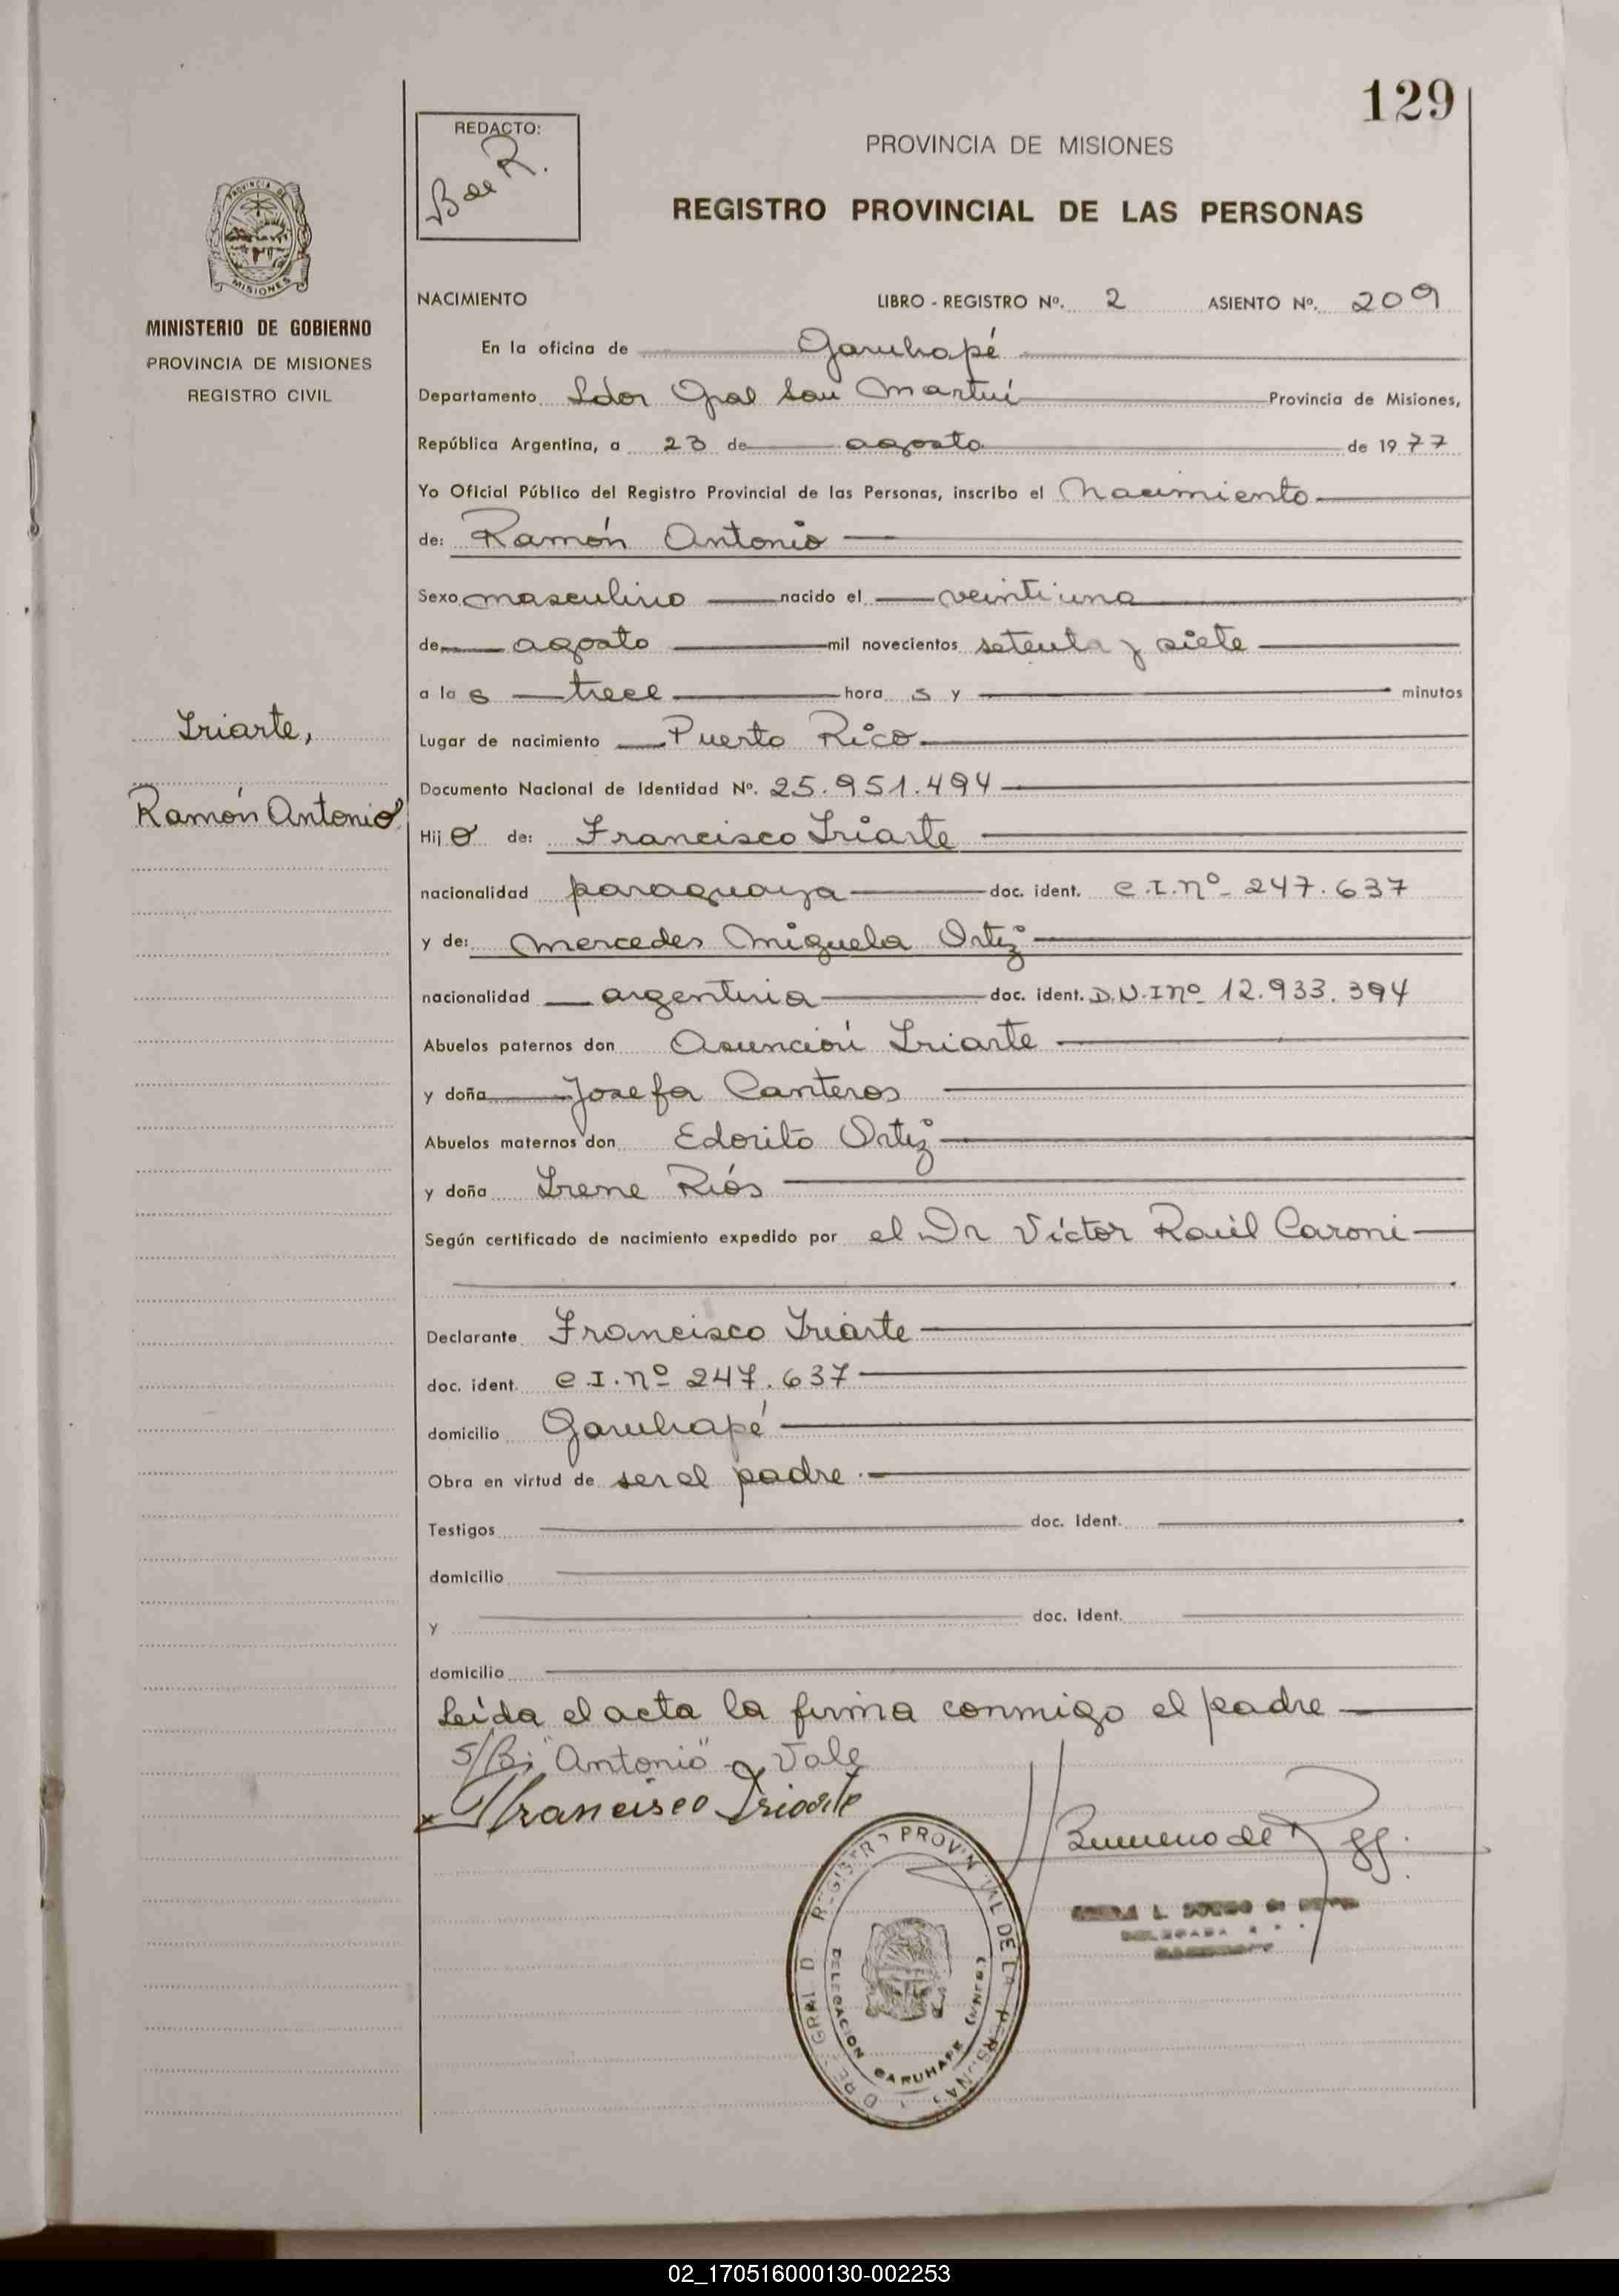 129
REDACTO:
B de R.
PROVINCIA DE MISIONES
REGISTRO PROVINCIAL DE LAS PERSONAS
PROVINCIA DE
MISIONES
MINISTERIO DE GOBIERNO
PROVINCIA DE MISIONES
REGISTRO CIVIL
Iriarte,
Ramón Antonio
NACIMIENTO LIBRO - REGISTRO Nº. 2 ASIENTO Nº. 209
En la oficina de Garuhapé
Departamento Ldor Gral San Martín Provincia de Misiones,
República Argentina, a 23 de agosto de 1977
Yo Oficial Público del Registro Provincial de las Personas, inscribo el Nacimiento
de: Ramón Antonio
Sexo masculino nacido el veintiuno
de agosto mil novecientos setenta y siete
a las trece horas y minutos
Lugar de nacimiento Puerto Rico
Documento Nacional de Identidad Nº. 25.951.494
Hijo de: Francisco Iriarte
nacionalidad paraguaya doc. ident. C.I.nº 247.637
y de: Mercedes Miguela Ortiz
nacionalidad argentina doc. ident. D.N.I nº 12.933.394
Abuelos paternos don Asunción Iriarte
y doña Josefa Canteros
Abuelos maternos don Edorito Ortiz
y doña Irene Ríos
Según certificado de nacimiento expedido por el Dr Víctor Raúl Caroni
Declarante Francisco Iriarte
doc. ident. C.I.nº 247.637
domicilio Garuhapé
Obra en virtud de ser el padre.
Testigos doc. Ident.
domicilio
y doc. Ident.
domicilio
Leída el acta la firma conmigo el padre
S/B: "Antonio" Vale
x Francisco Iriarte
REGISTRO PROVINCIAL DE LAS PERSONAS
DELEGACION GARUHAPE
02_170516000130-002253